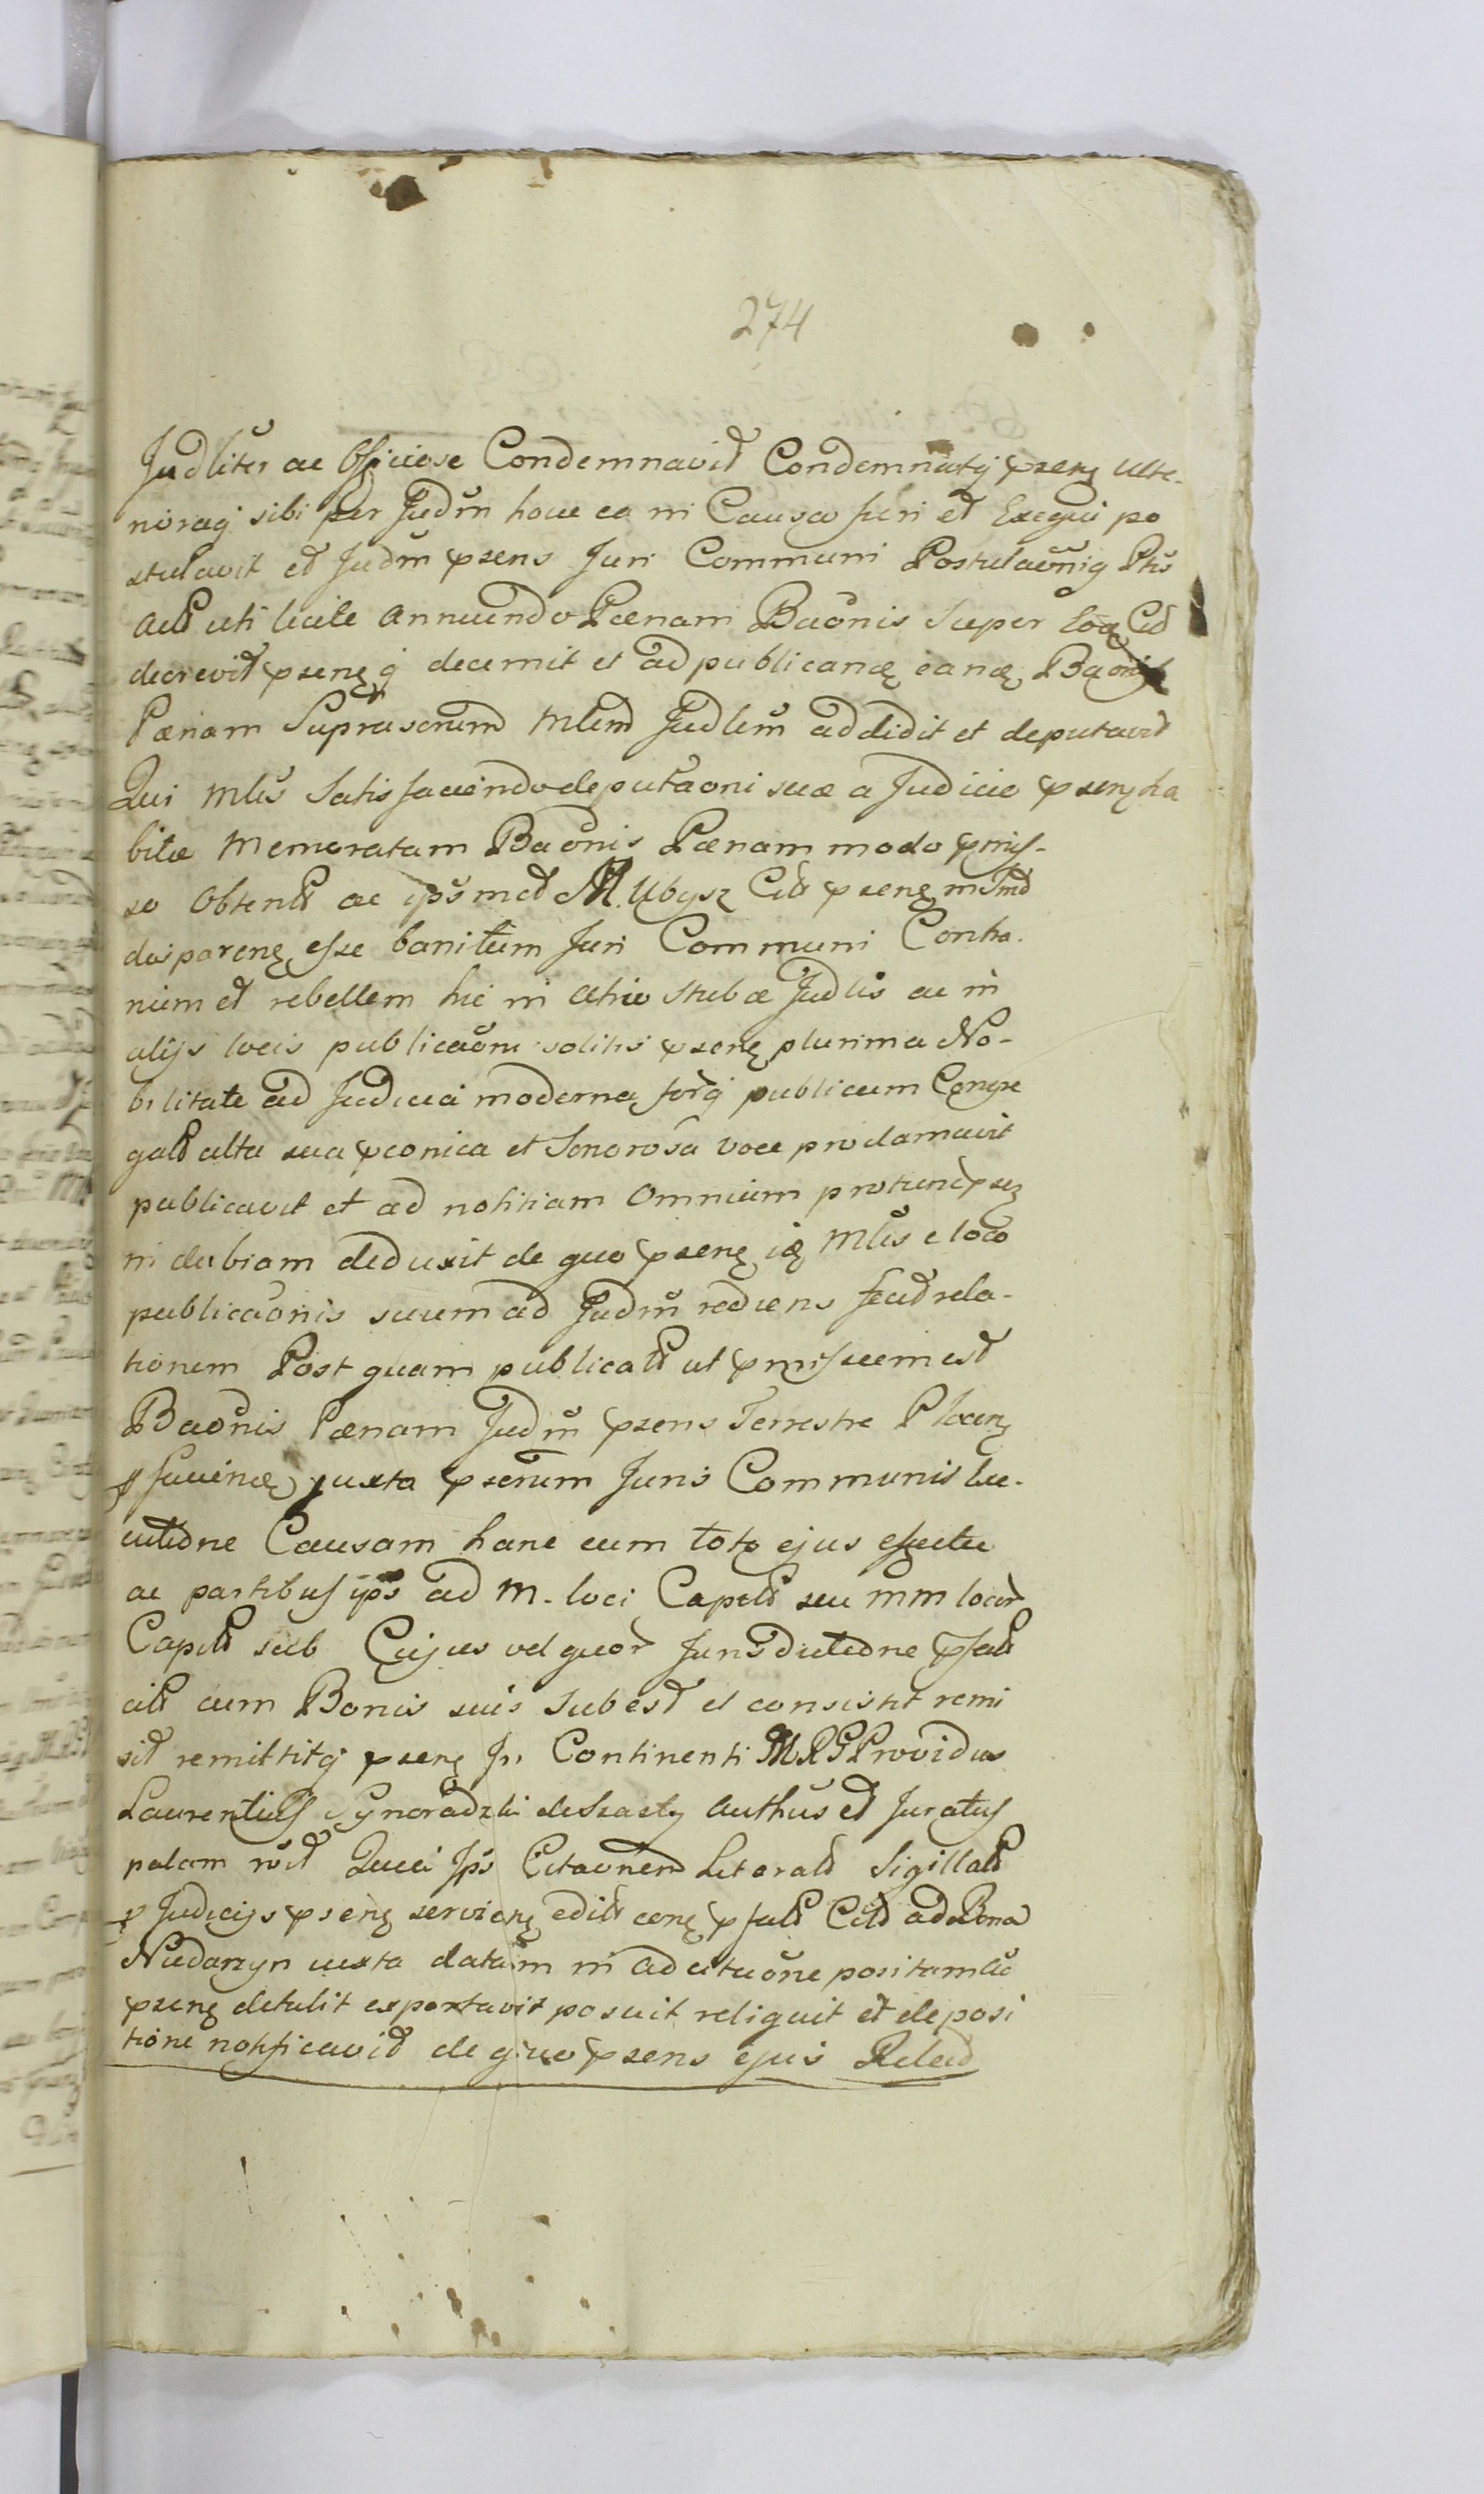 274
Judliter ac Officiose Condemnavit Condemnatq psenz ulte-
riorag sibi per Judm hocce ea in Causa fieri et Exequi po
stulavit et Judm psens Juri Communi Postulaonig Ptis
Act uti licite annuendo Paenam Baonis Super Cit
decrevit psenz q decernit et ad publicanae eanae Baonis
Paenam Suprascrium Mlem Judlem addidit et deputavit
Qui Mlis Satisfaciendo deputaoni suae a Judicio psenz ha
bitae Memoratam Baonis Paenam modo pmis-
so Obtent ac ipsmet M. Ubysz Cit psenz in
dos parenz esse banitum Juri Communi Contra-
rium et rebellem hic in Atrio Stubae Judlis ac in
alijs locis publicaoni solitis psenz plurima No-
bilitate ad Judicia moderna forq publicum Congre
gatt alta sua pconica et Sonorosa voce proclamavit
publicavit et ad notitiam Omnium protunc psez
in dubiam deduxit de quo psenz Mlis e loco
publicaonis suum ad Judm rediens fecit rela-
tionem Post quam publicatt ut pmissum est
Baonis Paenam Judm psens Terrestre Plocenz
juxta pscrium Juris Communis loc-
cutione Causam hanc cum toto ejus effectu
ac partibus ips ad M. loci Capitt seu MM locor
Capitt sub Cujus vel quor Jurisdictione pfatt
citt cum Bonis suis Subest et consistit remi
sit remittitq psenz In Continenti MRG Providus
Laurentius Synoradzki de Szasty authus et Juratus
palam rvit Quia Ips Citaonem Literatt Sigillatt
p Judicijs psenz servienz editt conz pfatt Citt ad Bona
Niedarzyn iuxta datam in ad citaone positam Ac
psenz detulit exportavit posuit reliquit et de posi
tione notificavit de quo psens ejus Relatt